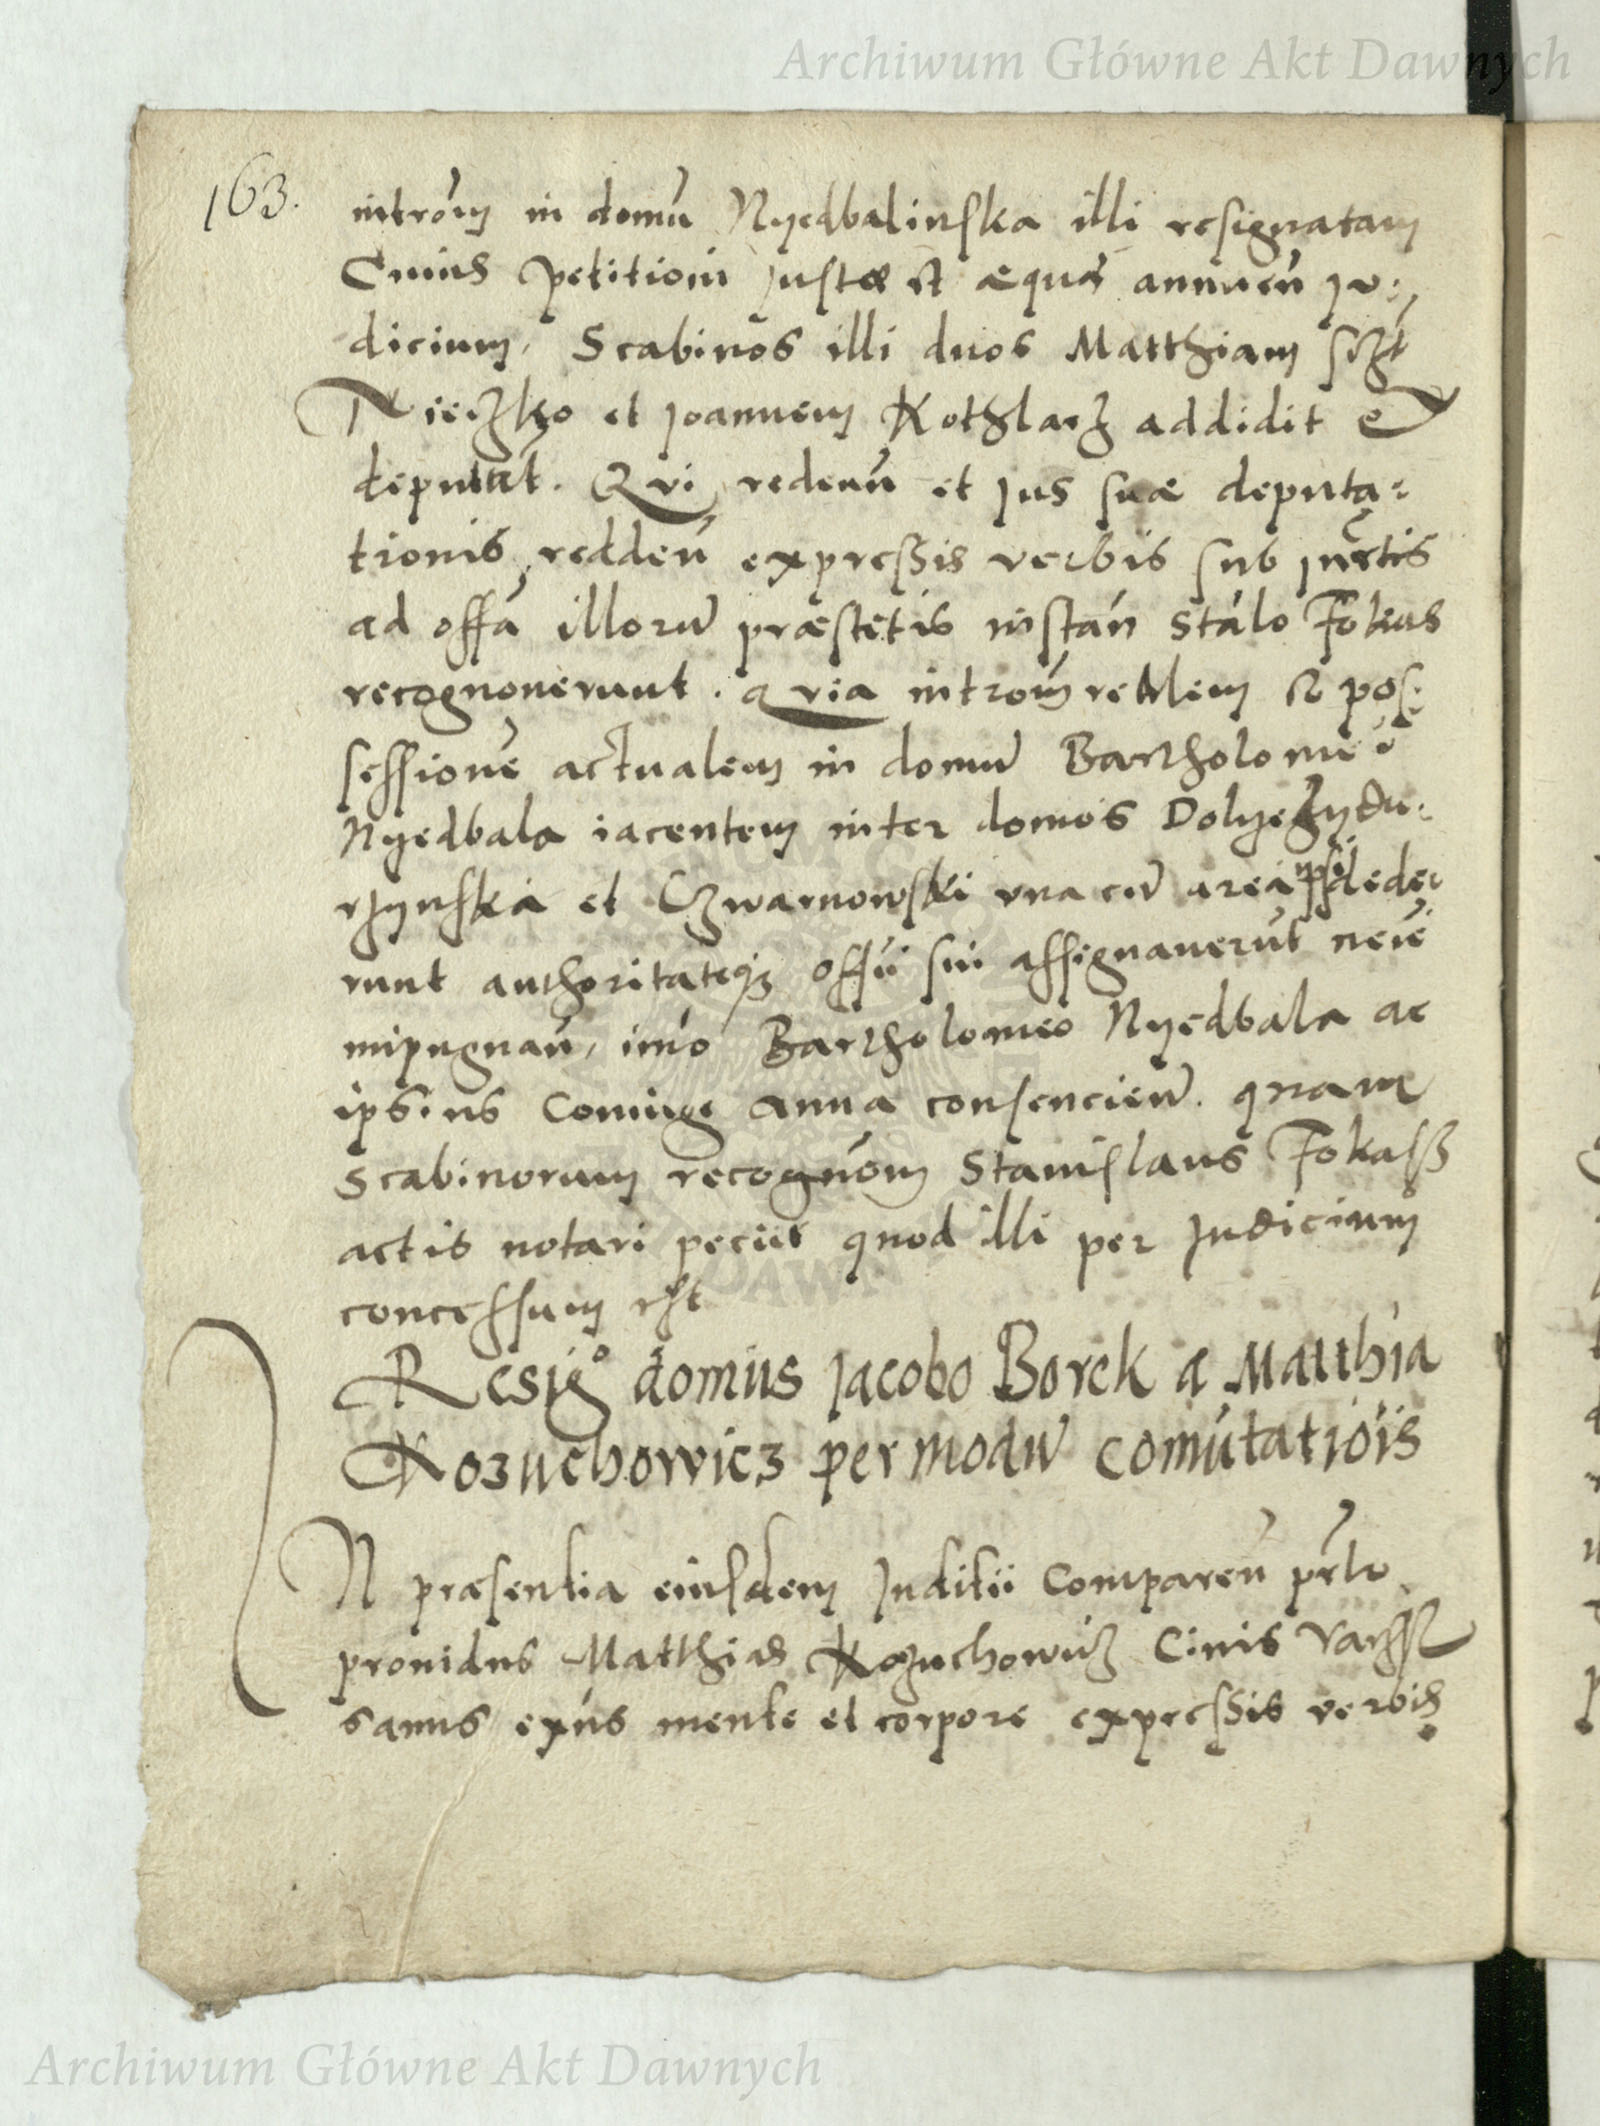 Archiwum Główne Akt Dawnych
163.
intrōm in domū Nyedbalinska illi resignatam
Cuius petitioni Justæ et æquæ annuen̄ Ju-
dicium, Scabinos illi duos Matthiam
et Joannem Kothlarz addidit et
deputat. Qui redeun̄ et Jus suæ deputa-
tionis redden̄ expressis verbis sub
ad offā illorū instan̄ Stalo Fokus
recognoverunt. Quia intrōm realem & pos-
sessionē actualem in domū Bartholomei
Nyedbala iacentem inter domos
et Czwarnowski una cū area ipsi dede-
runt authoritateqz offii sui assignaverūt
impugnan̄, imo Bartholomeo Nyedbala ac
ipsius Coniuge Anna consencien̄. quam
Scabinorum recognōm Stanislaus Fokalsz
actis notari peciit quod illi per Judicium
concessum est
Resigo domus Jacobo Borek a Matthia
Kozuchowicz per modū comūtatiōis
IN præsentia eiusdem Juditii Comparen̄
providus Matthias Kozuchowicz Civis
sanus exn̄s mente et corpore expressis verbis
Archiwum Główne Akt Dawnych